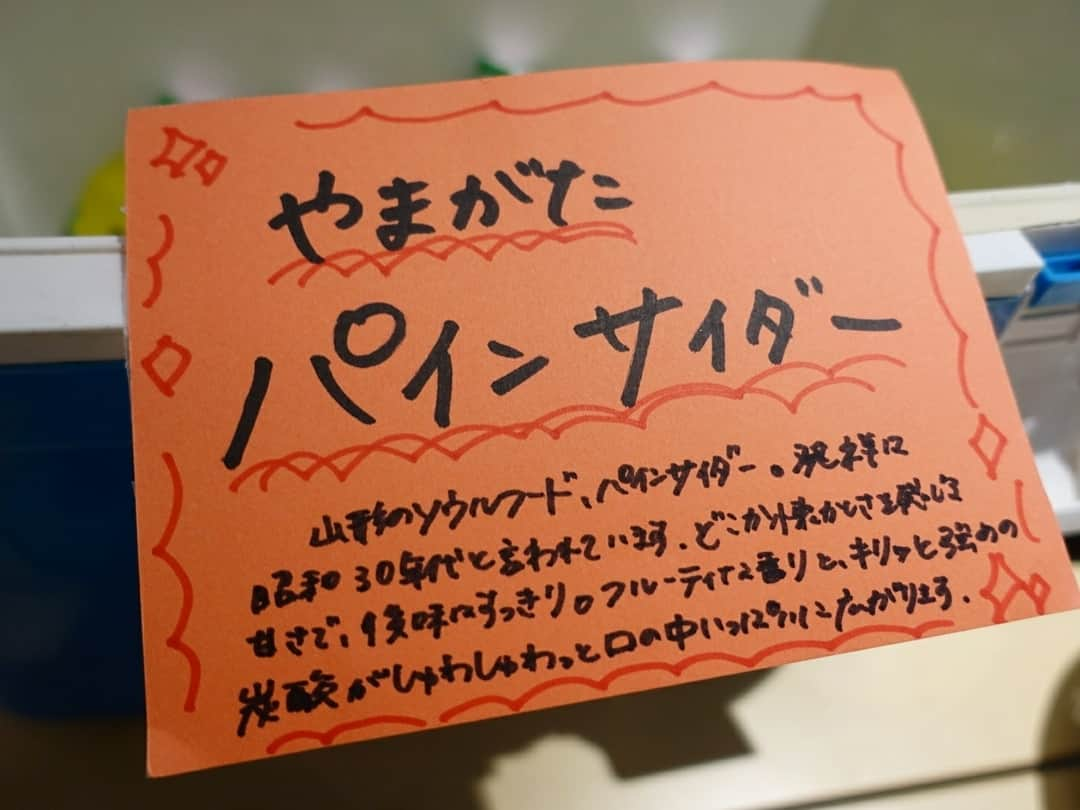 やまがた
パインサイダー
山形のソウルフード、パインサイダー。発祥は
昭和30年代と言われています。どこか懐かしさを感じる
甘さで、後味はすっきり。フルーティな香りと、キリッと強めの
炭酸がしゅわしゅわっと口の中いっぱいに広がります。